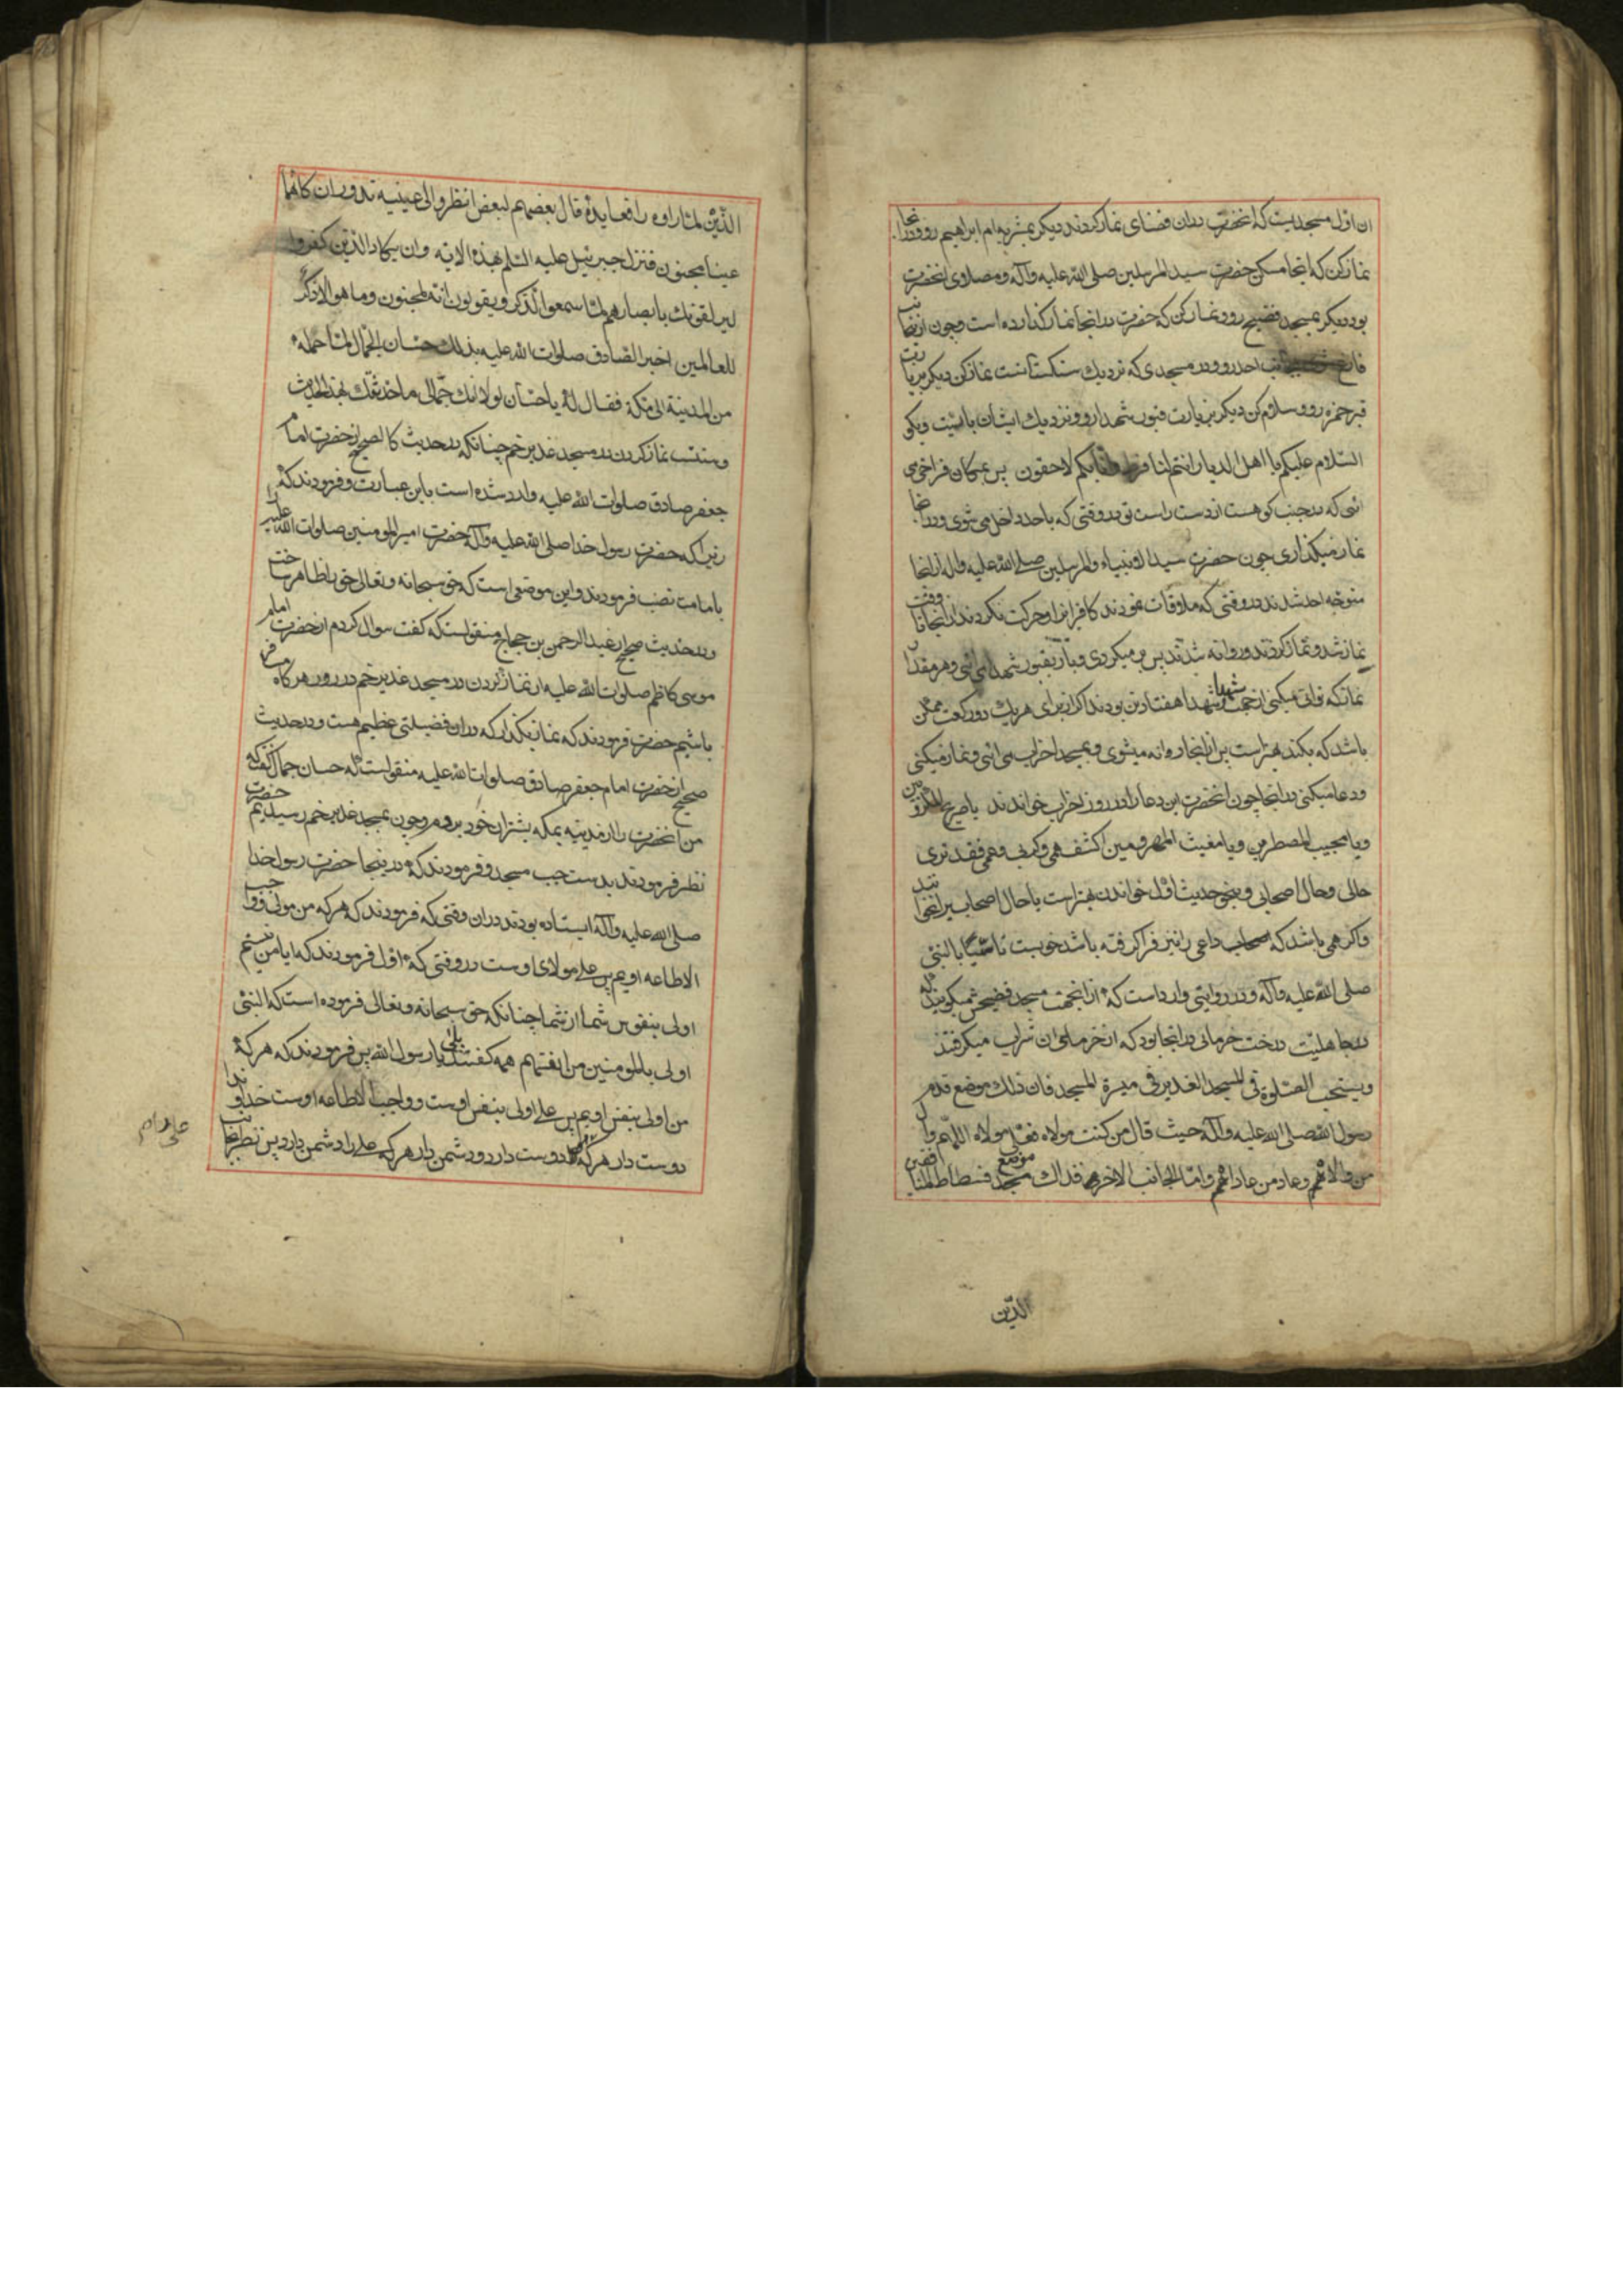 ان اول مسجدیست که انحضرت دران فضای نماز کردند دیکر بمشربه ام ابراهیم رو ودرانجا
نماز کن که اینجا مسکن حضرت سید المرسلین صلی الله علیه وآله ومصلاوی انحضرت
بود دیکر بمسجد فضیح رو ونماز کن که حضرت در انجا نماز کذارده است وچون ازینجانب
فارغ شدی بجانب احد رو ودر مسجدی که نزدیک سنکستانست نماز کن دیکر بزیارت
قبر حمزه رو وسلام کن دیکر بزیارت قبور شهدا رو ونزدیک ایشان بایست وبکو
السلام علیکم یا اهل الدیار انتم لنا فرط وانا بکم لاحقون پس بمکان فراخی می
ائی که در جنب کوهست از دست راست تو در وقتی که باحد داخل می شوی ودرانجا
نماز میکذاری چون حضرت سید الانبیاء والمرسلین صلی الله علیه واله ازانجا
متوجه احد شدند در وقتی که ملاقات نمودند کافرانرا وحرکت نکردند از انجا تا وقت
نماز شد ونماز کردند وروانه شدند پس بر میکردی وباز بقبور شهدا می ائی وهر مقدار
نماز که توانی میکنی از جهت شهدا شهدا هفتاد تن بودند اکر از برای هر یک دو رکعت ممکن
باشد که بکند بهتر است پس از انجا روانه میشوی وبمسجد احزاب می ائی ونماز میکنی
ودعا میکنی در انجا چون انحضرت این دعا را در روز احزاب خواندند یا صریخ المکروبین
ویا مجیب المضطرین ویا مغیث المهمومین اکشف همی وکربی وغمی فقد تری
حالی وحال اصحابی وبنحو حدیث اول خواندن بهتر است یا حال اصحاب نیز بخوانند
واکر همی باشد که اصحاب داعی را نیز فرا کرفته باشد خوبست تاسیا بالنبی
صلی الله علیه وآله ودر روایتی وارد است که از انجهت مسجد فضیحش میکویند که
در جاهلیت درخت خرمائی در انجا بود که از خرمای ان شراب میکرفتند
ویستحب الصلوة فی المسجد الغدیر فی میسرة المسجد فان ذلک موضع قدم
رسول الله صلی الله علیه وآله حیث قال من کنت مولاه فعلی مولاه اللهم وال
من والاهم وعاد من عاداهم واما الجانب الاخر فذاک موضع مسجد فسطاط المنافقین
الذین
الذین لما راوه رافعا یده قال بعضهم لبعض انظروا الی عینیه تدوران کانهما
عینا مجنون فنزل جبرئیل علیه السلم بهذه الایه وان یکاد الذین کفروا
لیزلقونک بابصارهم لما سمعوا الذکر ویقولون انه لمجنون وما هو الا ذکر
للعالمین اخبر الصادق صلوات الله علیه بذلک حسان الجمال لما حمله
من المدینة الی مکة فقال له یا حسان لولا انک جمالی ما حدثتک بهذا الحدیث
وسنت نماز کردن در مسجد غدیر خم چنانکه در حدیث کالصحیح از حضرت امام
جعفر صادق صلوات الله علیه وارد شده است باین عبارت وفرمودند که
زیرا که حضرت رسول خدا صلی الله علیه وآله حضرت امیر المومنین صلوات الله علیه را
بامامت نصب فرمودند واین موضعی است که حق سبحانه وتعالی حق را ظاهر ساخت
ودر حدیث صحیح از عبد الرحمن بن حجاج منقولست که کفت سوال کردم از حضرت امام
موسی کاظم صلوات الله علیه از نماز کردن در مسجد غدیر خم در روز هر کاه مسافر
باشیم حضرت فرمودند که نماز بکذار که دران فضیلتی عظیم هست ودر حدیث
صحیح از حضرت امام جعفر صادق صلوات الله علیه منقولست که حسان جمال کفت که
من انحضرت را از مدینه بمکه بشتران خود بردم وچون بمسجد غدیر خم رسیدیم حضرت
نظر فرمودند بدست چپ مسجد وفرمودند که در ینجا حضرت رسول خدا
صلی الله علیه وآله ایستاده بودند دران وقتی که فرمودند که هر که من مولی وواجب
الاطاعه اویم پس علی مولای اوست در وقتی که اول فرمودند که ایا من نیستم
اولی بنفوس شما از شما چنانکه حق سبحانه وتعالی فرموده است که النبی
اولی بالمومنین من انفسهم همه کفتند بلی یا رسول الله پس فرمودند که هر که
من اولی بنفس اویم پس علی اولی بنفس اوست وواجب الاطاعه اوست خداوندا
دوست دار هر که علی را دوست دارد ودشمن دار هر که علی را دشمن دارد پس نظر بجانب